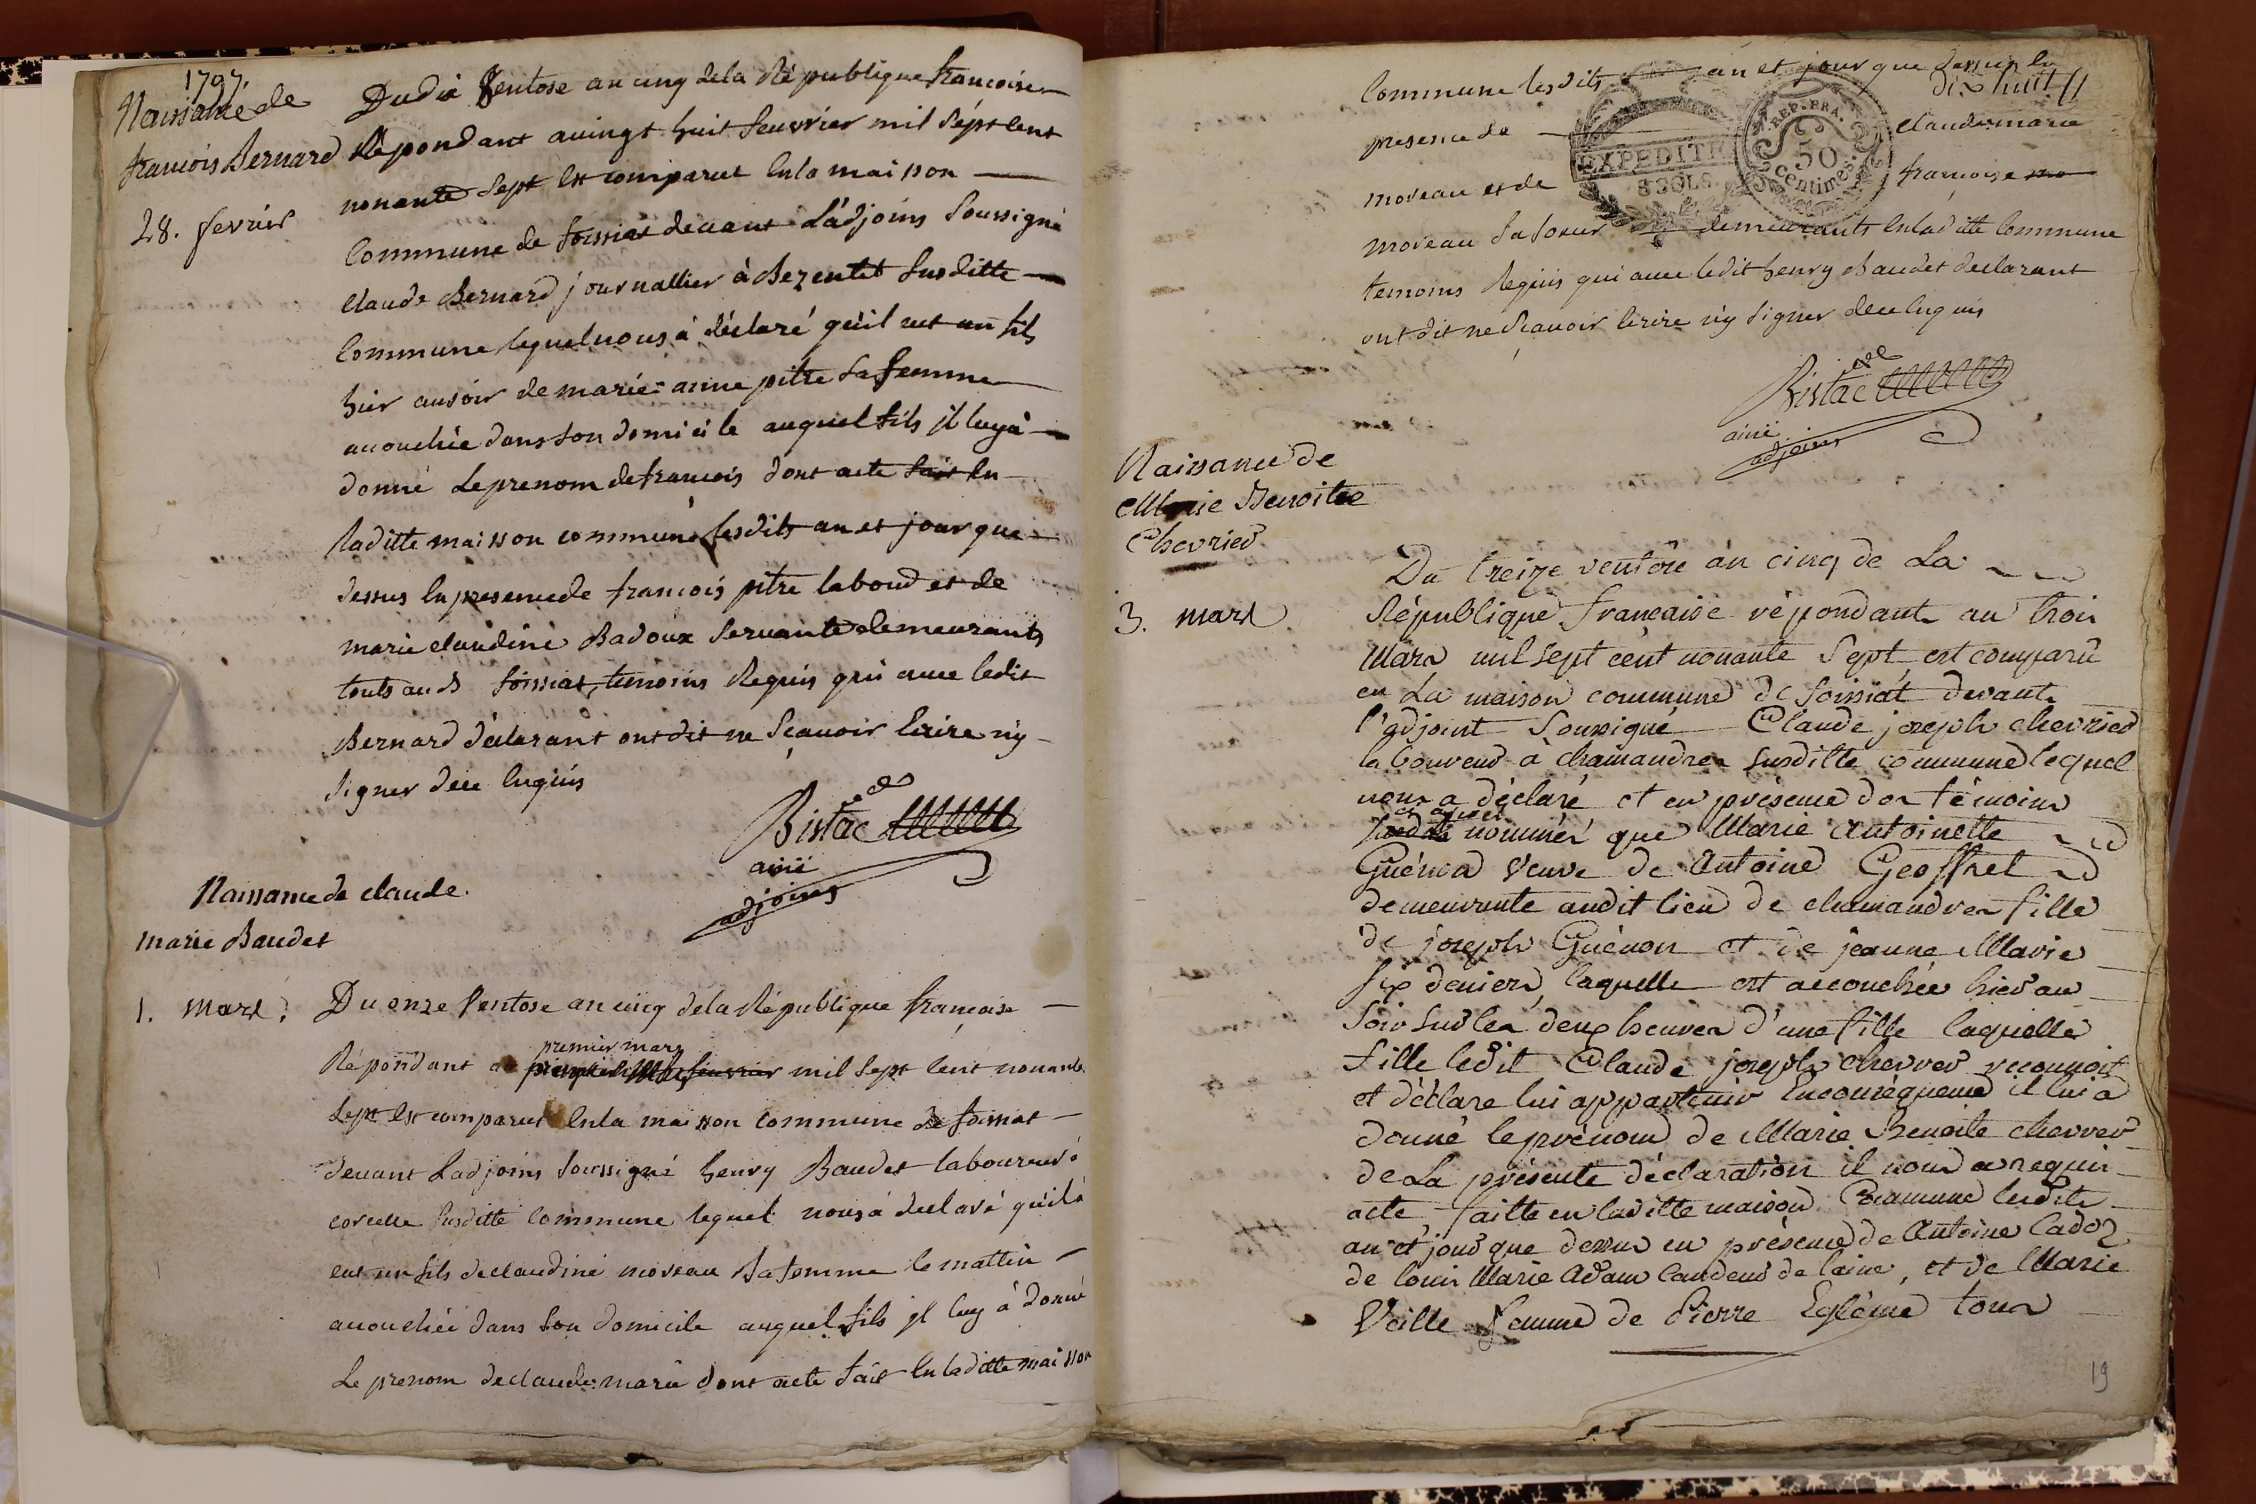 1797.
Naissance de
francois Bernard
28. fevrier
Du dix Ventose an cinq de la République francoise
Répondant a vingt huit feuvrier mil sept cent
nonante sept Est comparut En la maisson
Commune de foissiat devant L'adjoins soussigné
Claude Bernard journallier à Bezentet susditte
Commune lequel nous à déclaré qu'il eut un fils
hier au soir de marie-anne pitre sa femme
accouchée dans son domicile auquel fils jl luy à
donné Le prenom de francois dont acte fait En
laditte maisson commune lesdits an et jour que
dessus En presence de francois pitre laboud et de
marie claudine Badoux servante demeurants
touts aud foissiat, temoins Requis qui avec ledit
Bernard déclarant ont dit ne Sçavoir Ecrire ny
signer de ce Enquis
Bistac
ainé
adjoins
Naissance de claude
marie Baudet
1. mars
Du onze Ventose an cinq de la République francoise
premier mars
Répondant au mil sept cent nonante
sept Est comparut En la maisson commune de foissiat
devant Ladjoins soussigné henry Baudet laboureur à
corcelle susditte Commune lequel nous à declaré qu'il à
eut un fils de claudine moreau sa femme le mattin
accouchée dans son domicile auquel fils jl luy à donné
Le prenom de claude-marie dont acte fait En laditte maisson
Commune lesdits an et jour que dessus En
dix huit
presence de claude marie
EXPEDITI
8 SOLS
REP. FRA.
50
Centimes
moreau et de francoise mo
moreau sa soeur demeurants En laditte Commune
temoins Requis qui avec ledit henry Baudet declarant
ont dit ne Scavoir Ecrire ny signer de ce Enquis
Bistac
ainé
adjoins
Naissance de
Marie Benoitte
Chevrier
3. mars
Du treize ventôse an cinq de La
République française répondant au trois
Mars mil sept cent nonante Sept est comparû
en La maison commune de foissiat devant
l'adjoint Soussigné Claude joseph chevrier
laboureur à chamandrea susditte commune lequel
nous a déclaré et en présence des témoins
ci après
nommés que Marie Antoinette
Guénon Veuve de Antoine Geoffret
demeurante audit lieu de chamandrea fille
de joseph Guénon et de jeanne Marie
six deniers laquelle est accouchée hier au
soir sur les deux heures d'une fille laquelle
fille ledit Claude joseph chevrer reconnoit
et déclare lui appartenir Enconséquence il lui a
donné le prénom de Marie Benoite chevrer
de La présente déclaration il nous a requis
acte faitte en laditte maison Commune lesdits
an et jour que dessus en présence de Antoine Cadoz
de louis Marie Adam Cardeur de laine, et de Marie
Veille femme de Pierre Eglème tous
19